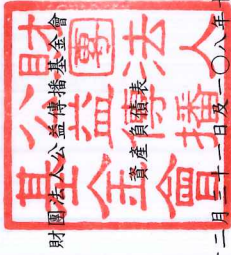 財團法人公益傳播基金會
資產負債表
二月三十一日及一〇八年
財團法人
公益傳播
基金會